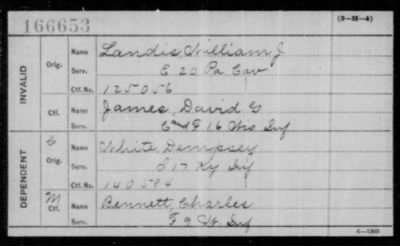 166653
(3-H-4)
INVALID
Orig.
Name Landis, William J.
Serv. E 20 Pa Cav
Ctf. No. 125056
Ctf.
Name James, David G
Serv. F 16 Wis Inf
DEPENDENT
Orig.
Name White, Dempsey
Serv. I 17 Ky Inf
Ctf. No. 140584
M
Ctf.
Name Bennett, Charles
Serv. F 9 Vt. Inf